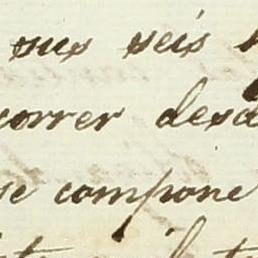 sus seis
correr desd
se compone